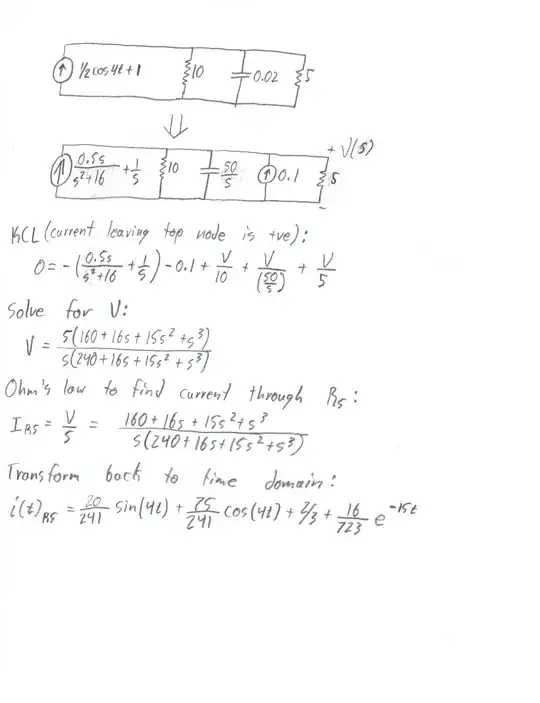 1/2 cos 4t + 1 10 0.02 5
⇓
+ V(s)
0.5s/(s²+16) + 1/s 10 50/s 0.1 5
-
KCL (current leaving top node is +ve):
0 = -(0.5s/(s²+16) + 1/s) - 0.1 + V/10 + V/(50/s) + V/5
Solve for V:
V = 5(160+16s+15s²+s³)/s(240+16s+15s²+s³)
Ohm's law to find current through R5:
I_R5 = V/5 = 160+16s+15s²+s³/s(240+16s+15s²+s³)
Transform back to time domain:
i(t)_R5 = 20/241 sin(4t) + 75/241 cos(4t) + 2/3 + 16/723 e^-15t